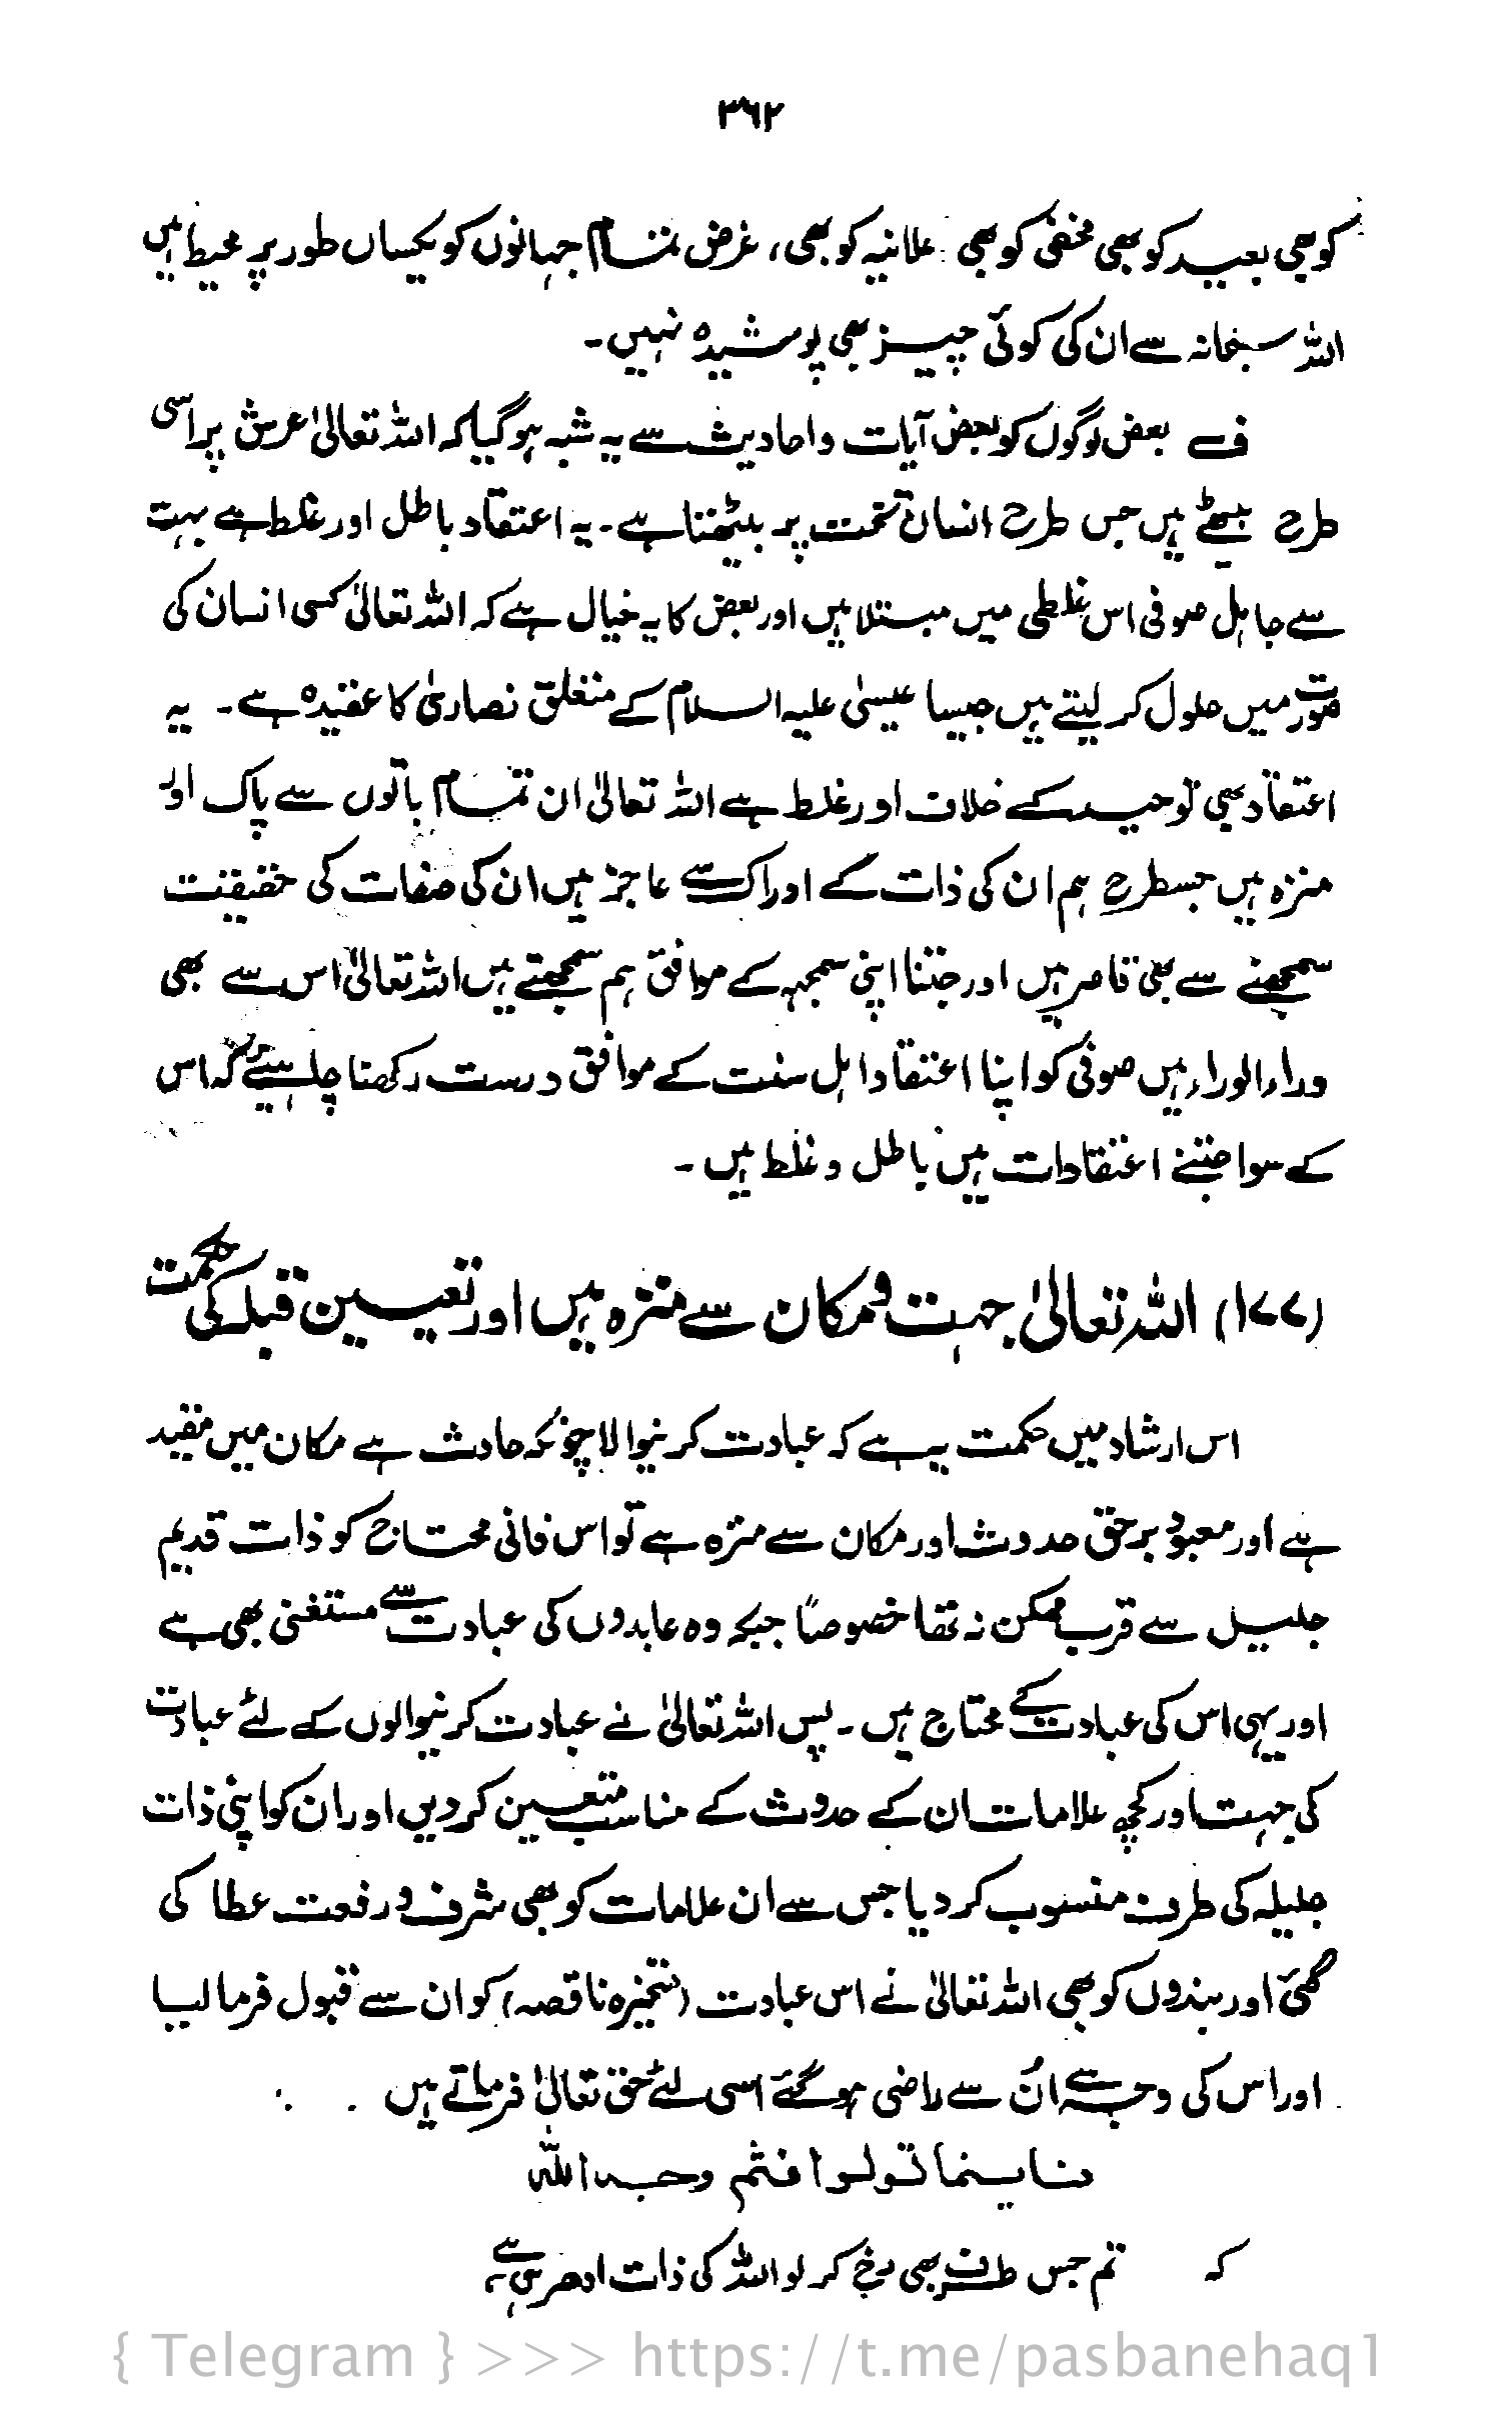 ۳۶۲
کو بھی بعید کو بھی مخفی کو بھی علانیہ کو بھی، غرض تمام جہانوں کو یکساں طور پر محیط ہیں
اللہ سبحانہ سے ان کی کوئی چیز بھی پوشیدہ نہیں۔
ف بعض لوگوں کو بعض آیات و احادیث سے یہ شبہ ہو گیا کہ اللہ تعالیٰ عرش پر اسی
طرح بیٹھے ہیں جس طرح انسان تخت پر بیٹھتا ہے۔ یہ اعتقاد باطل اور غلط ہے بہت
سے جاہل صوفی اس غلطی میں مبتلا ہیں اور بعض کا یہ خیال ہے کہ اللہ تعالیٰ کسی انسان کی
صورت میں حلول کر لیتے ہیں جیسا عیسیٰ علیہ السلام کے متعلق نصاریٰ کا عقیدہ ہے۔ یہ
اعتقاد بھی توحید کے خلاف اور غلط ہے اللہ تعالیٰ ان تمام باتوں سے پاک اور
منزہ ہیں جسطرح ہم ان کی ذات کے ادراک سے عاجز ہیں ان کی صفات کی حقیقت
سمجھنے سے بھی قاصر ہیں اور جتنا اپنی سمجہہ کے موافق ہم سمجھتے ہیں اللہ تعالیٰ اس سے بھی
وراء الوراء ہیں صوفی کو اپنا اعتقاد اہل سنت کے موافق درست رکھنا چاہیئے کہ اس
کے سوا جتنے اعتقادات ہیں باطل و غلط ہیں۔
(۱۷۷) اللہ تعالیٰ جہت و مکان سے منزہ ہیں اور تعیین قبلہ کی حکمت
اس ارشاد میں حکمت یہ ہے کہ عبادت کرنیوالا چونکہ حادث ہے مکان میں مقید
ہے اور معبود برحق حدوث اور مکان سے منزہ ہے تو اس فانی محتاج کو ذات قدیم
جلیل سے قرب ممکن نہ تھا خصوصاً جبکہ وہ عابدوں کی عبادت سے مستغنی بھی ہے
اور یہی اس کی عبادت کے محتاج ہیں۔ پس اللہ تعالیٰ نے عبادت کرنیوالوں کے لئے عبادت
کی جہت اور کچھ علامات ان کے حدوث کے مناسب متعین کردیں اور ان کو اپنی ذات
جلیلہ کی طرف منسوب کر دیا جس سے ان علامات کو بھی شرف و رفعت عطا کی
گئی اور بندوں کو بھی اللہ تعالیٰ نے اس عبادت (متحیزہ ناقصہ) کو ان سے قبول فرما لیا
اور اس کی وجہ سے اُن سے راضی ہوگئے اسی لئے حق تعالیٰ فرماتے ہیں
فاینما تولوا فثم وجه الله
کہ تم جس طرف بھی رخ کر لو اللہ کی ذات ادھر ہی ہے
{ Telegram } >>> https://t.me/pasbanehaq1